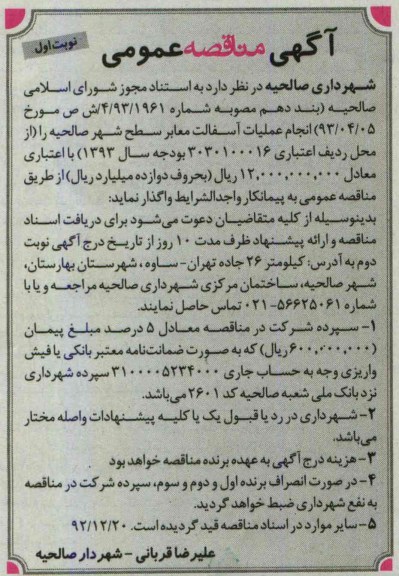 آگهی مناقصه عمومی
نوبت اول
شهرداری صالحیه در نظر دارد به استناد مجوز شورای اسلامی
صالحیه (بند دهم مصوبه شماره ۴/۹۳/۱۹۶۱/ش ص مورخ
۹۳/۰۴/۰۵) انجام عملیات آسفالت معابر سطح شهر صالحیه را (از
محل ردیف اعتباری ۳۰۳۰۱۰۰۰۱۶ بودجه سال ۱۳۹۳) با اعتباری
معادل ۱۲,۰۰۰,۰۰۰,۰۰۰ ریال (بحروف دوازده میلیارد ریال) از طریق
مناقصه عمومی به پیمانکار واجدالشرایط واگذار نماید:
بدینوسیله از کلیه متقاضیان دعوت می‌شود برای دریافت اسناد
مناقصه و ارائه پیشنهاد ظرف مدت ۱۰ روز از تاریخ درج آگهی نوبت
دوم به آدرس: کیلومتر ۲۶ جاده تهران- ساوه، شهرستان بهارستان،
شهر صالحیه، ساختمان مرکزی شهرداری صالحیه مراجعه و یا با
شماره ۵۶۶۲۵۰۶۱-۰۲۱ تماس حاصل نمایند.
۱- سپرده شرکت در مناقصه معادل ۵ درصد مبلغ پیمان
(۶۰۰,۰۰۰,۰۰۰ریال) که به صورت ضمانت‌نامه معتبر بانکی یا فیش
واریزی وجه به حساب جاری ۳۱۰۰۰۰۵۲۳۴۰۰۰ سپرده شهرداری
نزد بانک ملی شعبه صالحیه کد ۲۶۰۱ می‌باشد.
۲- شهرداری در رد یا قبول یک یا کلیه پیشنهادات واصله مختار
می‌باشد.
۳- هزینه درج آگهی به عهده برنده مناقصه خواهد بود
۴- در صورت انصراف برنده اول و دوم و سوم، سپرده شرکت در مناقصه
به نفع شهرداری ضبط خواهد گردید.
۵- سایر موارد در اسناد مناقصه قید گردیده است. ۹۲/۱۲/۲۰
علیرضا قربانی - شهردار صالحیه